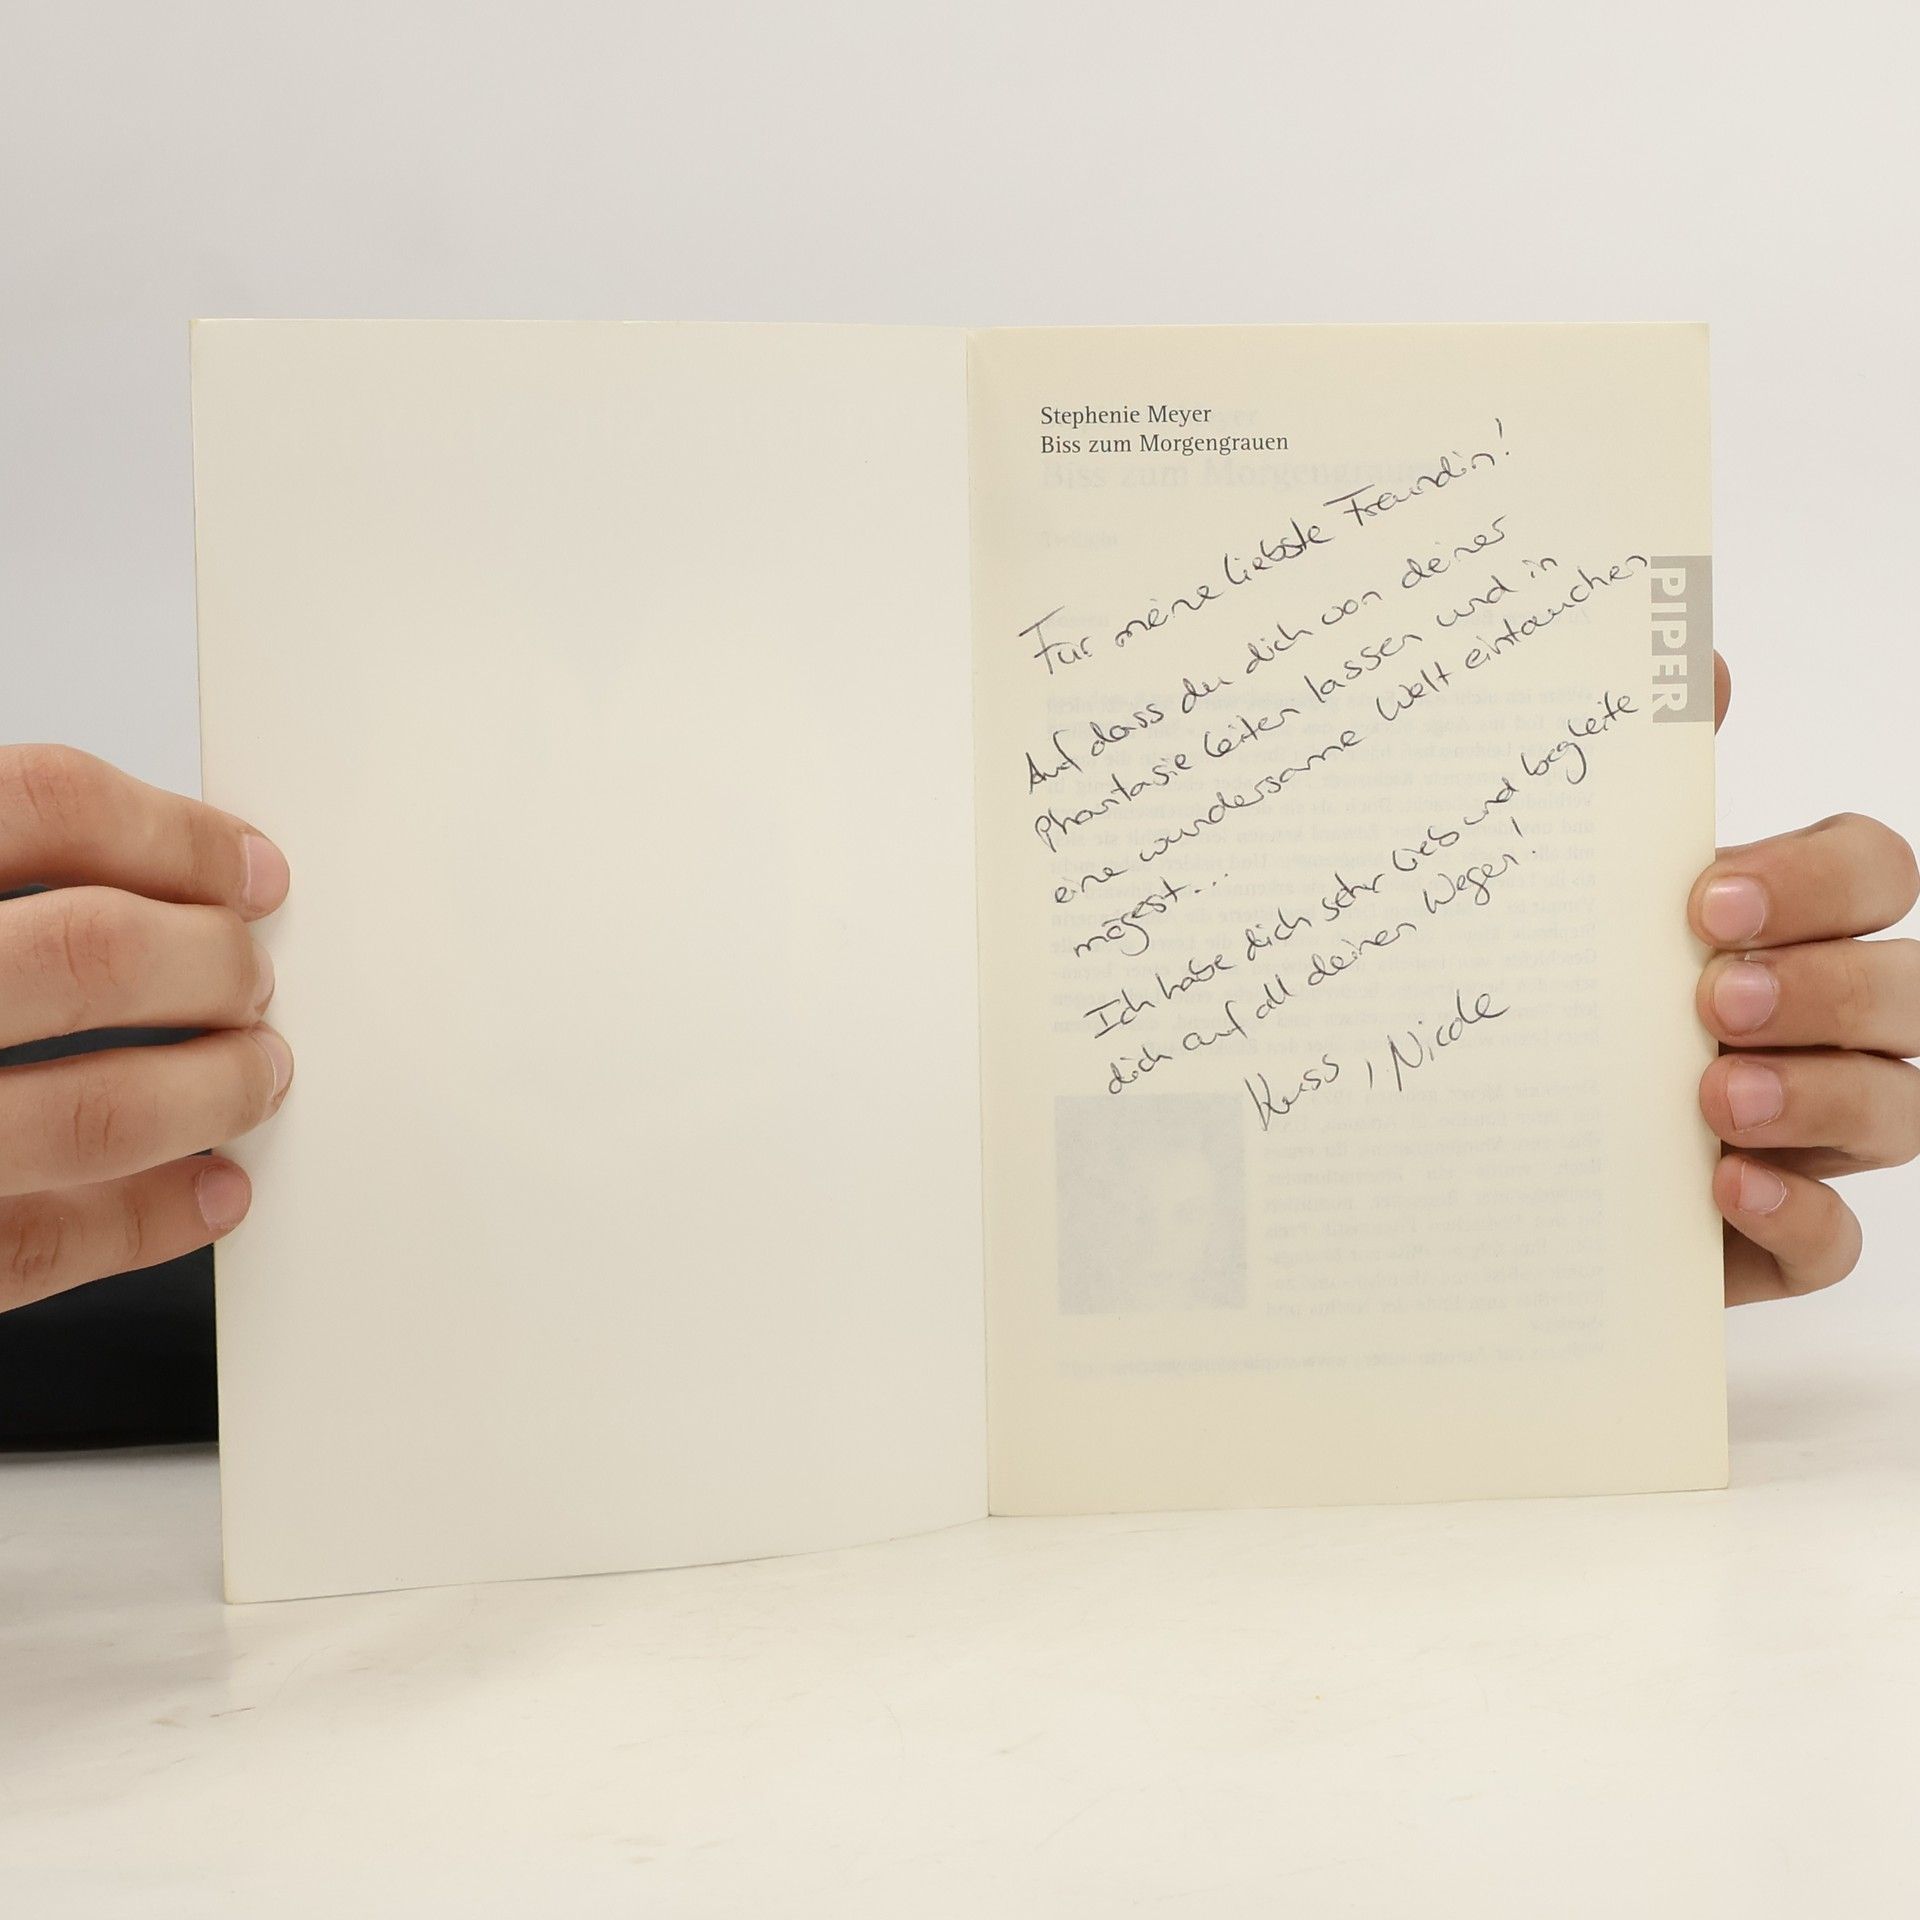 Stephenie Meyer
Biss zum Morgengrauen
Für meine liebste Freundin!
Auf dass du dich von deiner
Phantasie leiten lassen und in
eine wundersame Welt eintauchen
mögest...
Ich habe dich sehr lieb und begleite
dich auf all deinen Wegen!
Kuss, Nicole
PIPER